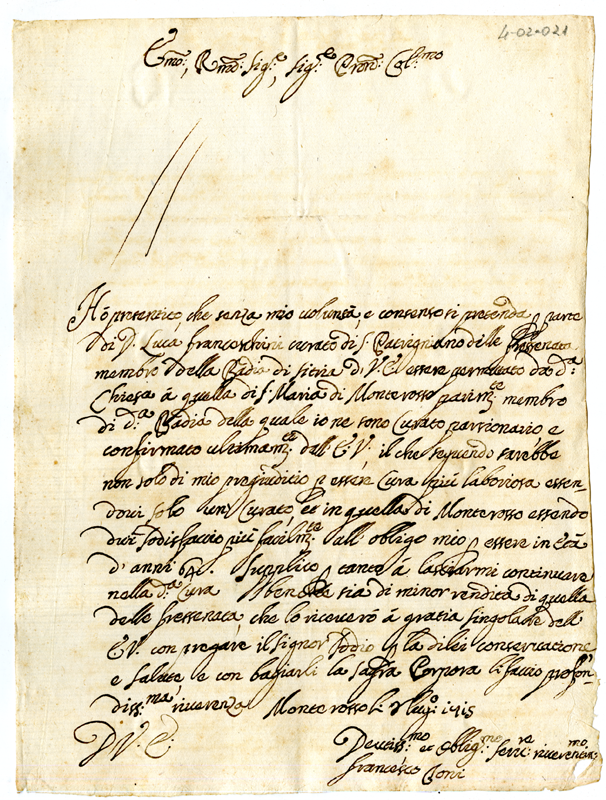 4-02-021
E.mo, R.mo Sig.re, Sig.re Pron. Col.mo
Hò presentito, che senza mio volontà, e consenso si pretenda p parte
di D. Luca Franceschini curato di S. Patrignano delle
membro della Badia di Sitria di V. E. essere permutato da d.a
Chiesa à quella di S. Maria di Monterosso parim.te membro
di d.a Badia della quale io ne sono Curato parrionario e
confirmato ultimam.te dall' E. V., il che seguendo sarebbe
non solo di mio pregiudicio p essere Cura più laboriosa essen-
dovi solo un Curato, et in quella di Monterosso essendo
dui sodisfaccio più facilm.te all' obligo mio p essere in età
d' anni 64. Supplico p tanto à lasciarmi continuare
nella d.a Cura benche sia di minor rendita di quella
delle fressenata, che lo riceverò à gratia singolare dell'
E. V. con pregare il Signor Iddio p la di lei conservatione
e salute e con baciarli la Sacra Porpora li faccio profon-
diss.ma riverenza Monterosso li Lug.o 1715
D V. E.
Devotiss.mo et oblig.mo serv.re riverentis.mo
Francesco